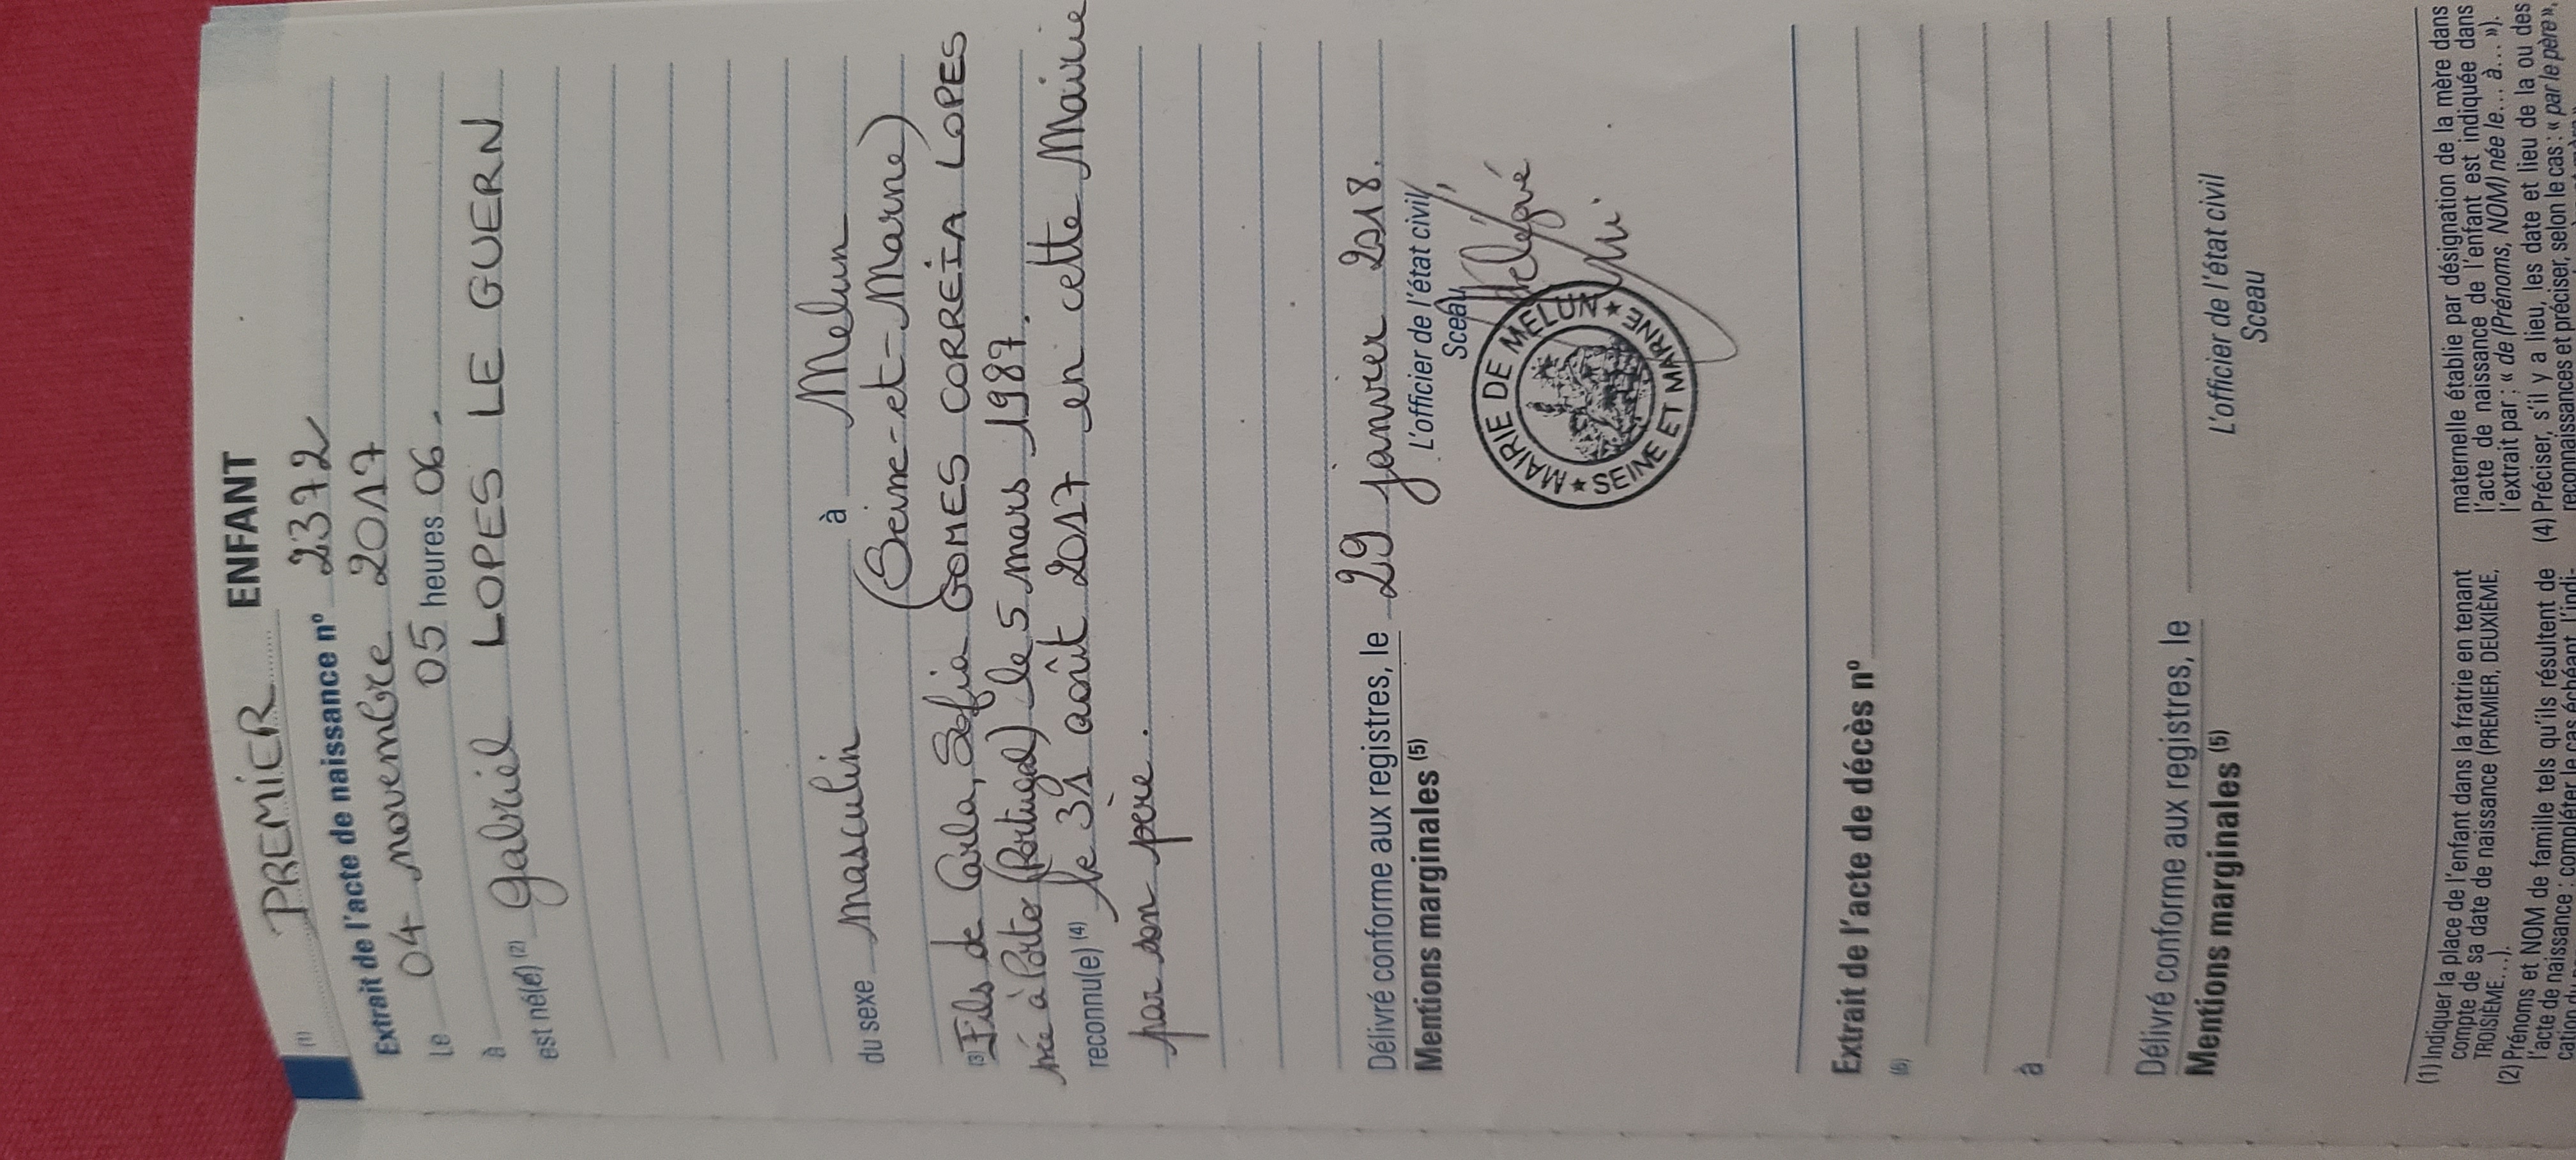 (1) PREMIER ENFANT
Extrait de l'acte de naissance nº 2372
Le 04 novembre 2017
à 05 heures 06.
est né(é) (2) Gabriel LOPES LE GUERN
du sexe masculin à Melun
(Seine-et-Marne)
(3) Fils de Carla, Sofia GOMES CORREIA LOPES
née à Porto (Portugal) le 5 mars 1987.
reconnu(e) (4) le 31 août 2017 en cette Mairie
par son père.
Délivré conforme aux registres, le 29 janvier 2018.
Mentions marginales (5)
L'officier de l'état civil,
Sceau
délégué
MAIRIE DE MELUN ★ SEINE ET MARNE ★
Extrait de l'acte de décès nº
(6)
à
Délivré conforme aux registres, le
Mentions marginales (5)
L'officier de l'état civil
Sceau
(1) Indiquer la place de l'enfant dans la fratrie en tenant
compte de sa date de naissance (PREMIER, DEUXIÈME,
TROISIÈME...).
(2) Prénoms et NOM de famille tels qu'ils résultent de
l'acte de naissance ; compléter, le cas échéant, l'indi-
maternelle établie par désignation de la mère dans
l'acte de naissance de l'enfant est indiquée dans
l'extrait par : « de (Prénoms, NOM) née le... à... »).
(4) Préciser, s'il y a lieu, les date et lieu de la ou des
reconnaissances et préciser, selon le cas : « par le père »,